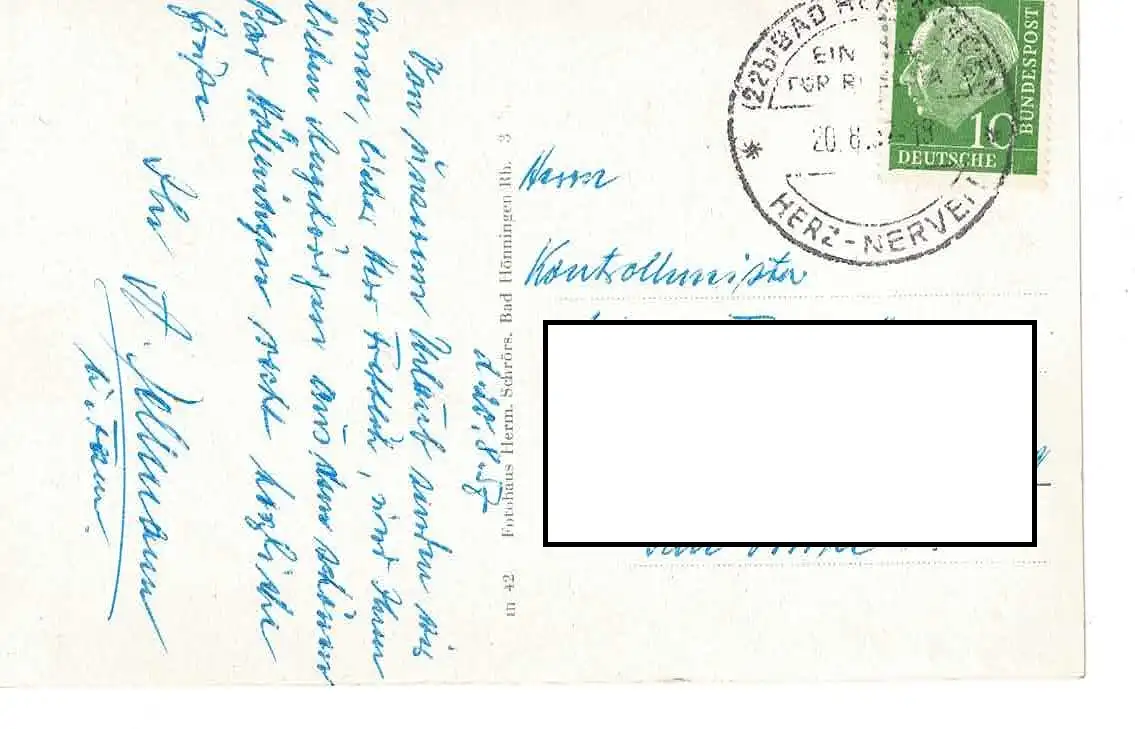 d. 20. 8. 57
Von unserem Urlaub senden wir
Ihnen, lieber Herr und Ihren
lieben Angehörigen aus dem schönen
Bad Hönningen recht herzliche
Grüße
Ihr
u. Fam.
Fotohaus Herm. Schrörs, Bad Hönningen Rh. 3
42
Herrn
Kontrollmeister
(22b) BAD
EIN
FÜR
20. 8.
HERZ-NERVEN
10
DEUTSCHE
BUNDESPOST